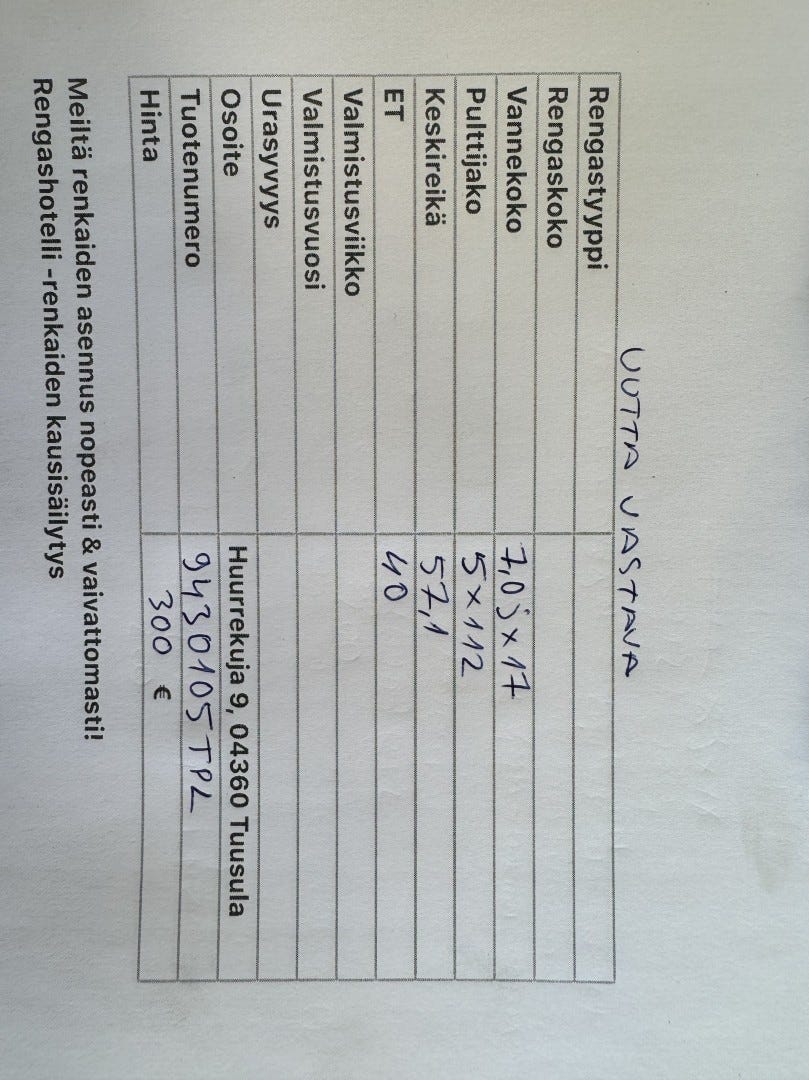 UUTTA VASTAVA
Rengastyyppi
Rengaskoko
Vannekoko 7,0jx17
Pulttijako 5x112
Keskireikä 57,1
ET 40
Valmistusviikko
Valmistusvuosi
Urasyvyys
Osoite Huurrekuja 9, 04360 Tuusula
Tuotenumero 9430105TPL
Hinta 300 €
Meiltä renkaiden asennus nopeasti & vaivattomasti!
Rengashotelli -renkaiden kausisäilytys